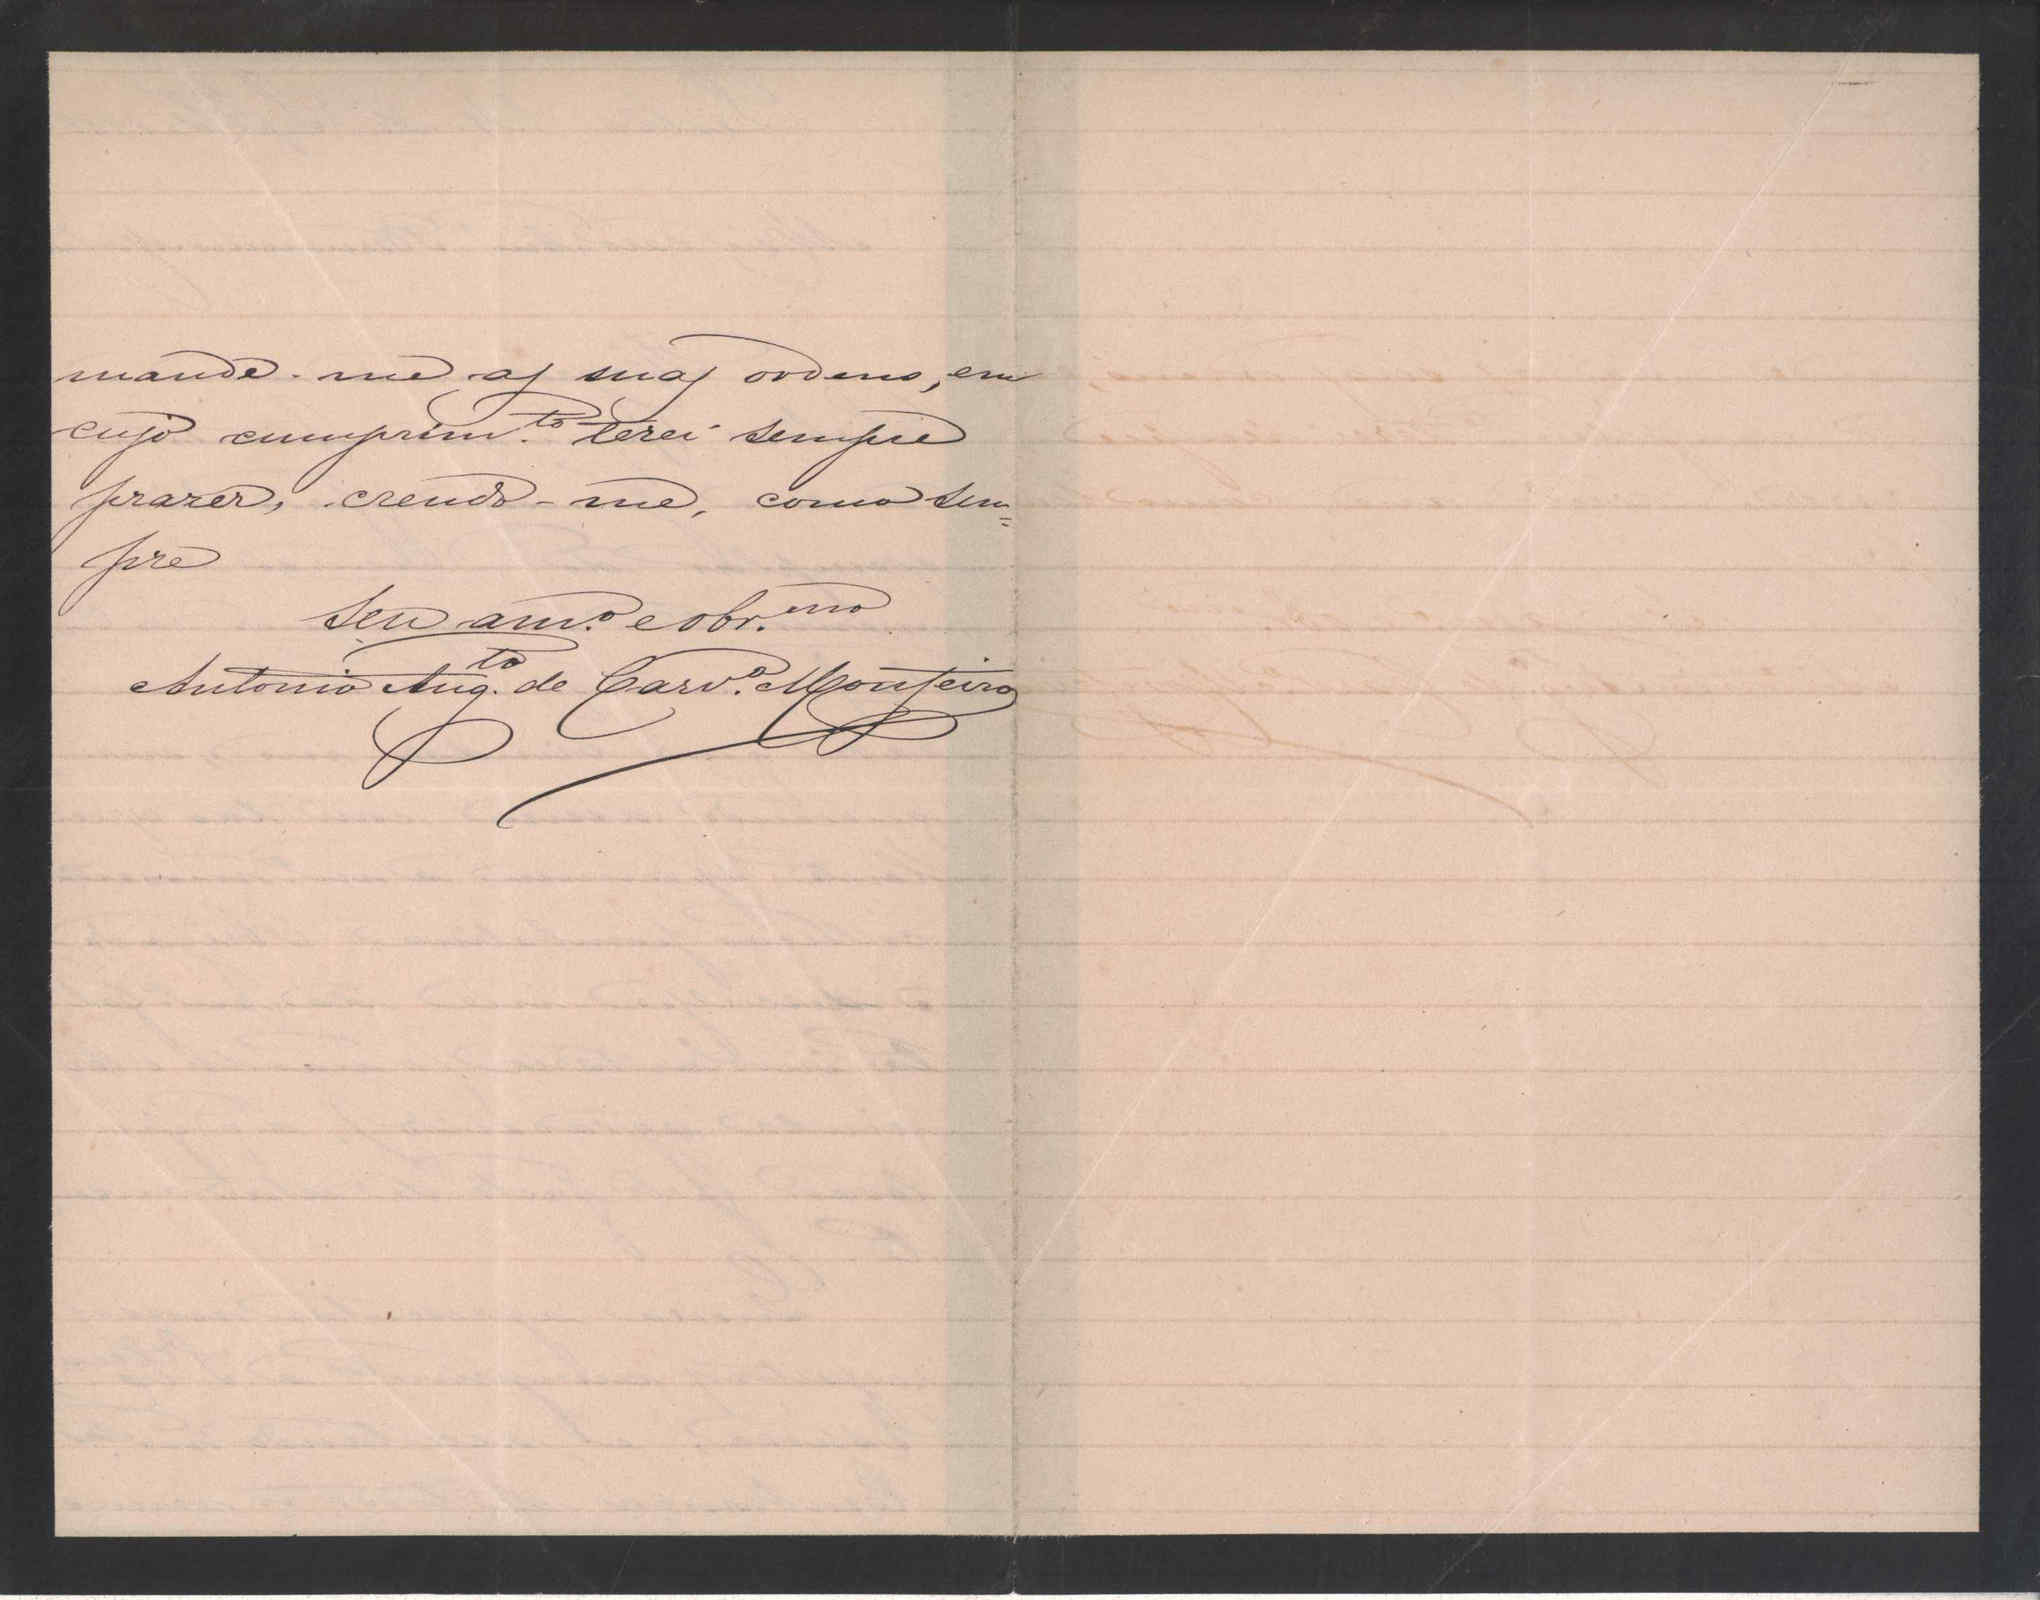 mande-me as suas ordens, em
cujo cumprim.to terei sempre
prazer, crendo-me, como sem=
pre
seu am.o e obr.mo
Antonio Aug.to de Carv.o Monteiro